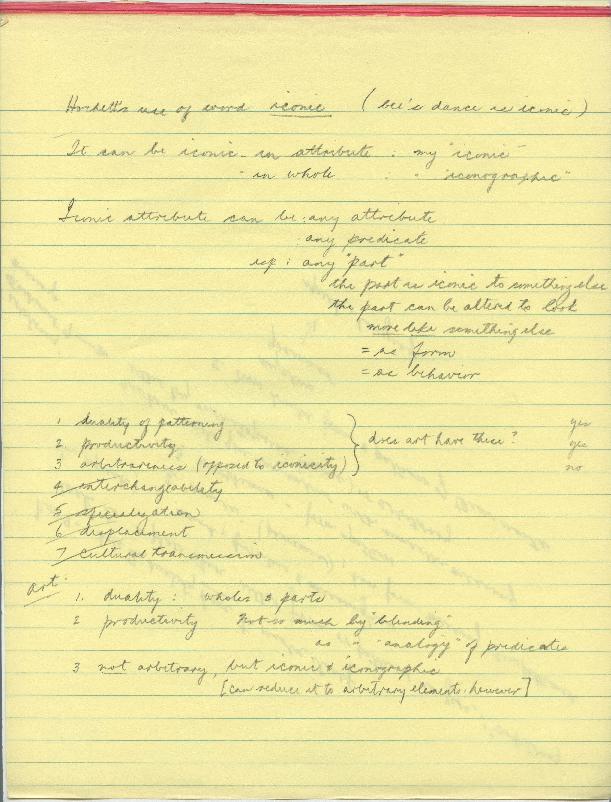 Hockett's use of word iconic (bee's dance is iconic)
It can be iconic - in attribute : my "iconic"
" in whole : " "iconographic"
Iconic attribute can be : any attribute
: any predicate
esp : any "part"
the part is iconic to something else
the part can be altered to look
more like something else
= as form
= as behavior
1 duality of patterning yes
2. productivity } does art have these ? yes
3 arbitrariness (opposed to iconicity) no
4 interchangeability
5 specialization
6 displacement
7 cultural transmission
art
1. duality : wholes & parts
2 productivity Not so much by "blending"
as " "analogy" of predicates
3 not arbitrary, but iconic & iconographic
[can reduce it to arbitrary elements, however]